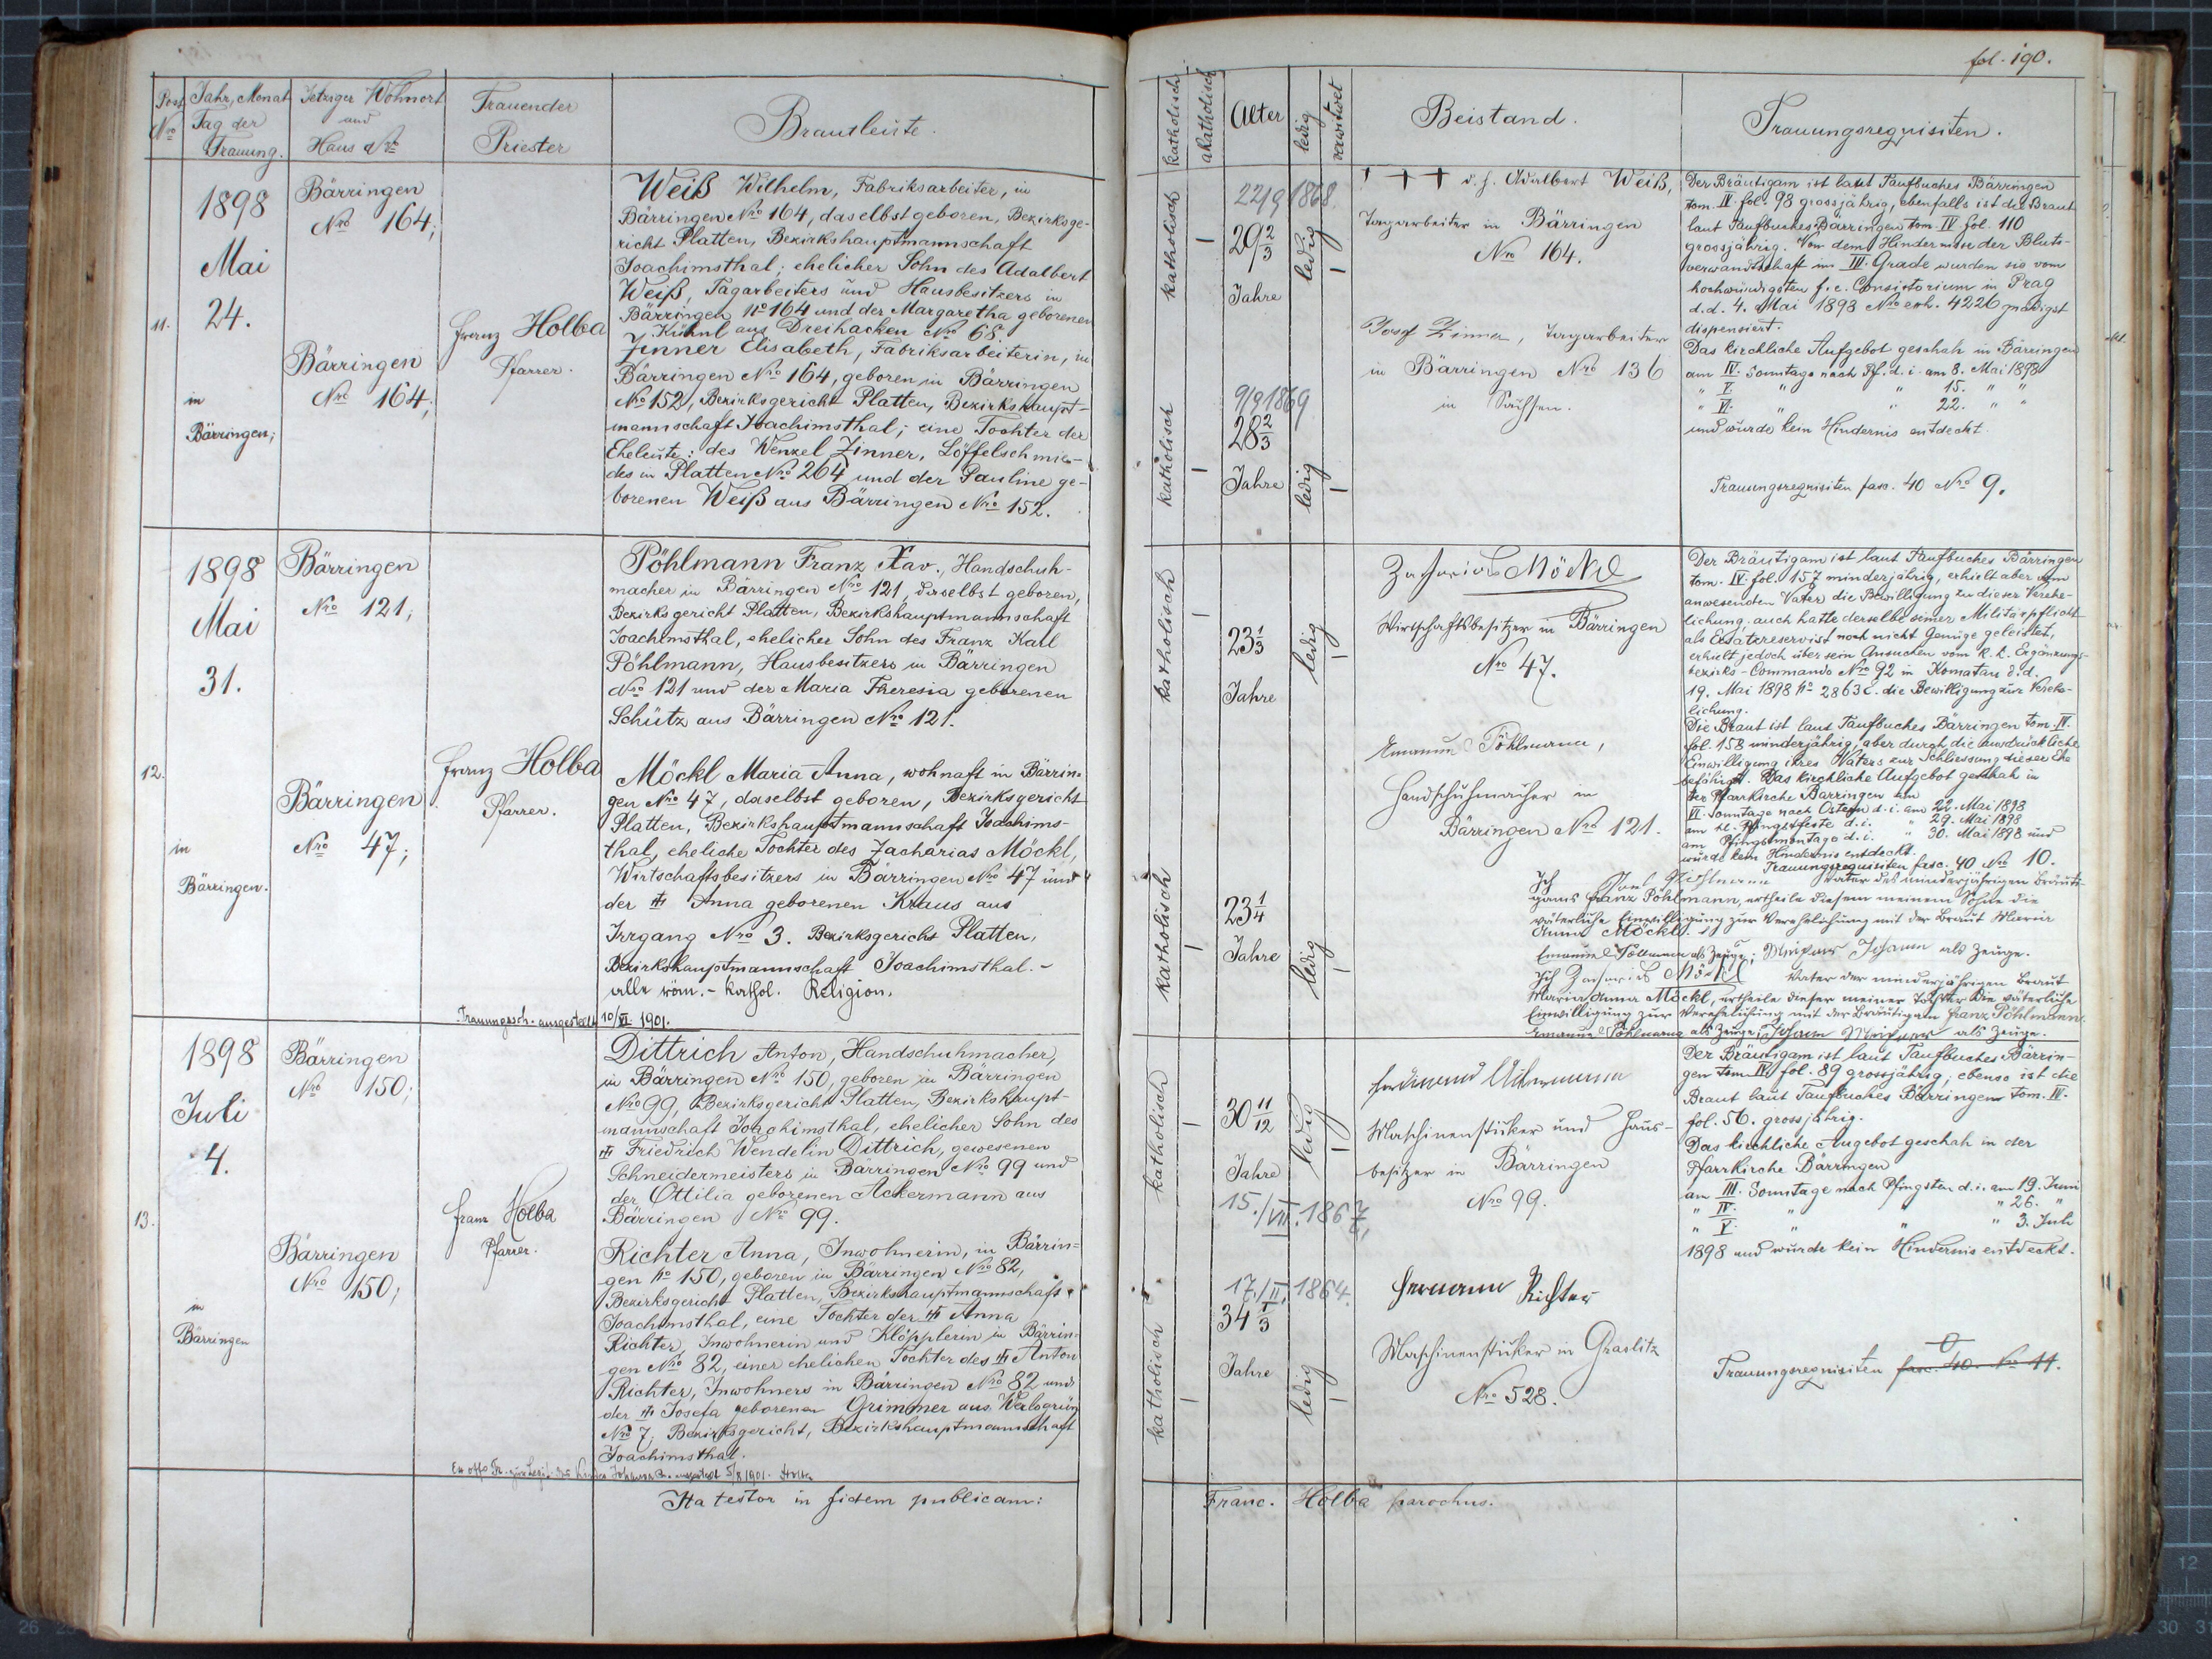 fol. 190.
Post Nro
Jahr, Monat
Tag der
Trauung.
Jetziger Wohnort
und
Haus Nro
Trauender
Priester
Brautleute.
katholisch
akatholisch
Alter
ledig
verwitwet
Beistand.
Trauungsrequisiten.
11.
1898
Mai
24.
in
Bärringen;
Bärringen
Nro 164;
Bärringen
Nro 164;
Franz Holba
Pfarrer.
Weiß Wilhelm, Fabriksarbeiter, in
Bärringen Nro 164, daselbst geboren, Bezirksge-
richt Platten, Bezirkshauptmannschaft
Joachimsthal; ehelicher Sohn des Adalbert
Weiß, Tagarbeiters und Hausbesitzers in
Bärringen No 164 und der Margaretha geborenen
Kühnl aus Dreihacken No 68.
Zinner Elisabeth, Fabriksarbeiterin, in
Bärringen Nro 164, geboren in Bärringen
No 152, Bezirksgericht Platten, Bezirkshaupt-
mannschaft Joachimsthal; eine Tochter der
Eheleute: des Wenzel Zinner, Löffelschmie-
des in Platten Nro 264 und der Pauline ge-
borenen Weiß aus Bärringen Nro 152.
katholisch
22/9 1868
29 2/3
Jahre
ledig
katholisch
9/9 1869
28 2/3
Jahre
ledig
+ + + d. h. Adalbert Weiß,
Tagarbeiter in Bärringen
Nro 164.
Josef Zinner, Tagarbeiter
in Bärringen Nro 136
in Sachsen.
Der Bräutigam ist laut Taufbuches Bärringen
tom. IV. fol. 98 grossjährig, ebenfalls ist die Braut
laut Taufbuches Bärringen tom. IV fol. 110
grossjährig. Von dem Hindernisse der Bluts-
verwandtschaft im III. Grade wurden sie vom
hochwürdigsten f. e. Consistorium in Prag
d.d. 4. Mai 1898 Nro exh. 4226 gnädigst
dispensiert.
Das kirchliche Aufgebot geschah in Bärringen
am IV. Sonntage nach Pf. d. i. am 8. Mai 1898
" V. " " 15. " "
" VI. " " 22. " "
und wurde kein Hindernis entdeckt.
Trauungsrequisiten fasc. 40 Nro 9.
12.
1898
Mai
31.
in
Bärringen.
Bärringen
Nro 121;
Bärringen
Nro 47;
Franz Holba
Pfarrer.
Pöhlmann Franz Xav., Handschuh-
macher in Bärringen Nro 121, dieselbst geboren,
Bezirksgericht Platten, Bezirkshauptmannschaft
Joachimsthal, ehelicher Sohn des Franz Karl
Pöhlmann, Hausbesitzers in Bärringen
Nro 121 und der Maria Theresia geborenen
Schütz aus Bärringen Nro 121.
Möckl Maria Anna, wohnaft in Bärrin-
gen Nro 47, daselbst geboren, Bezirksgericht
Platten, Bezirkshauptmannschaft Joachims-
thal, eheliche Tochter des Zacharias Möckl,
Wirtschaftsbesitzers in Bärringen Nro 47 und
der Anna geborenen Kraus aus
Irrgang Nro 3. Bezirksgericht Platten,
Bezirkshauptmannschaft Joachimsthal.-
alle röm.- kathol. Religion.
Trauungssch. ausgestellt 10/VI 1901.
katholisch
23 1/3
Jahre
ledig
katholisch
23 1/4
Jahre
ledig
Zacharias Möckl
Wirtschaftsbesitzer in Bärringen
Nro 47.
Emanuel Pöhlmann,
Handschuhmacher in
Bärringen Nro 121.
Der Bräutigam ist laut Taufbuches Bärringen
tom. IV. fol. 157 minderjährig, erhielt aber vom
anwesenden Vater die Bewilligung zu dieser Verehe-
lichung. auch hatte derselbe seiner Militärpflicht
als Ersatzreservist noch nicht Genüge geleistet,
erhielt jedoch über sein Ansuchen vom k. k. Ergänzungs-
bezirks-Commando Nro 92 in Komotau d. d.
19. Mai 1898 No 2863 E. die Bewilligung zur Verehe-
lichung.
Die Braut ist laut Taufbuches Bärringen tom. IV.
fol. 158 minderjährig, aber durch die ausdrückliche
Einwilligung ihres Vaters zur Schliessung dieser Ehe
befähigt. Das kirchliche Aufgebot geschah in
der Pfarrkirche Bärringen am
VI. Sonntage nach Ostern d. i. am 22. Mai 1898
am hl. Pfingstfeste d. i. " 29. Mai 1898
am Pfingstmontage d. i. " 30. Mai 1898 und
wurde kein Hindernis entdeckt.
Trauungsrequisiten fasc. 40 Nro 10.
Ich Pöhlmann Vater des minderjährigen Bräuti-
gams Franz Pöhlmann, ertheile diesem meinem Sohne die
väterliche Einwilligung zur Verehelichung mit der Braut Maria
Anna Möckl.
Emanuel Pöllmann als Zeuge; Johann als Zeuge.
Ich Zacharias Möckl Vater der minderjährigen Braut
Maria Anna Möckl, ertheile dieser meiner Tochter die väterliche
Einwilligung zur Verehelichung mit der Bräutigam Franz Pöhlmann.
Emanuel Pöhlmann als Zeuge, Johann als Zeuge.
13.
1898
Juli
4.
in
Bärringen
Bärringen
Nro 150;
Bärringen
Nro 150;
Franz Holba
Pfarrer.
Dittrich Anton, Handschuhmacher,
in Bärringen Nro 150, geboren in Bärringen
Nro 99, Bezirksgericht Platten, Bezirkshaupt-
mannschaft Joachimsthal, ehelicher Sohn des
Friedrich Wendelin Dittrich, gewesenen
Schneidermeisters in Bärringen Nro 99 und
der Ottilia geborenen Ackermann aus
Bärringen Nro 99.
Richter Anna, Inwohnerin, in Bärrin=
gen No 150, geboren in Bärringen Nro 82,
Bezirksgericht Platten, Bezirkshauptmannschaft
Joachimsthal, eine Tochter der Anna
Richter, Inwohnerin und Klöpplerin in Bärrin=
gen Nro 82, einer ehelichen Tochter des Anton
Richter, Inwohners in Bärringen Nro 82 und
der Josefa geborenen Grimmer aus
Nro 7; Bezirksgericht, Bezirkshauptmannschaft
Joachimsthal.
Ex offo Tr. zur Legit. des Kindes Johanna ausgestellt 5/8 1901. Holba
katholisch
30 11/12
Jahre
15./VII. 1867
ledig
katholisch
17./II. 1864.
34 1/3
Jahre
ledig
Ferdinand Ackermann
Maschinensticker und Haus-
besitzer in Bärringen
Nro 99.
Hermann Richter
Maschinensticker in Graslitz
Nro 528.
Der Bräutigam ist laut Taufbuches Bärrin-
gen tom IV. fol. 89 grossjährig; ebenso ist die
Braut laut Taufbuches Bärringen tom. IV.
fol. 56. grossjährig.
Das kirchliche Augebot geschah in der
Pfarrkirche Bärringen
am III. Sonntage nach Pfingsten d. i. am 19. Juni
" IV. " " " 26. "
" V. " " " 3. Juli
1898 und wurde kein Hindernis entdeckt.
Trauungsrequisiten fasc. 40. No 11.
Ita testor in fidem publicam:
Franc. Holba parochus.